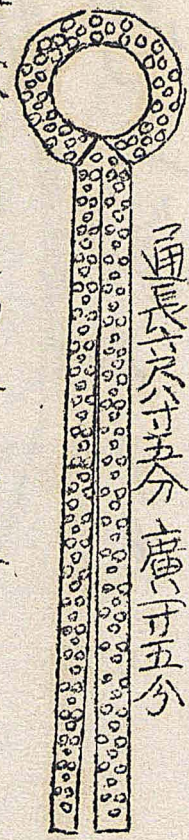 通長六尺八寸五分 廣一寸五分